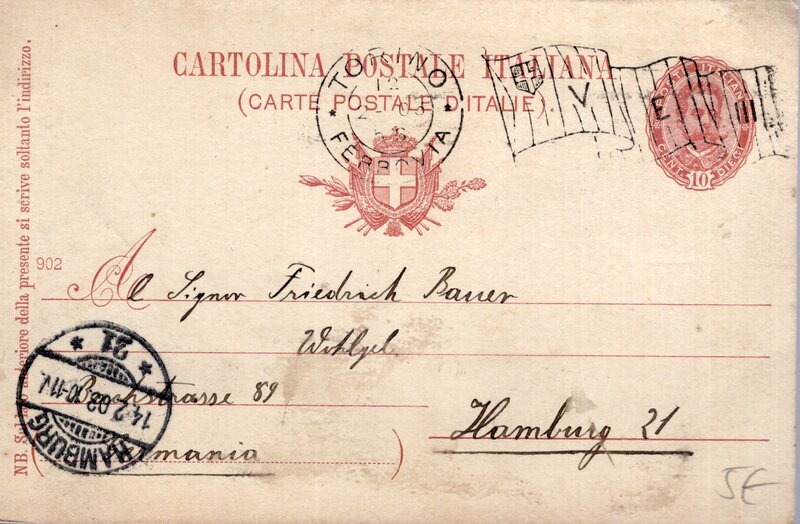 CARTOLINA POSTALE ITALIANA
(CARTE POSTALE D'ITALIE).
TORINO
12
FERROVIA
V E III
POSTE ITALIANE
CENT. DIECI
10
NB. Sul lato anteriore della presente si scrive soltanto l'indirizzo.
902
Al Signor Friedrich Bauer
Wohlgeb.
Bachstrasse 89
Hamburg 21
(Germania
HAMBURG
14.2.03.10-11V.
* 21 *
5€